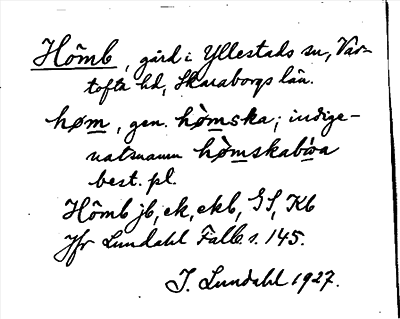 Hömb, gård i Yllestads sn, Var-
tofta hd, Skaraborgs län.
høm, gen. hòmska; indige-
natsnamn hòmskabòa
best. pl.
Hömb jb, ek, ekb, GS, Kb
Jfr Lundahl Falb. s. 145.
I. Lundahl 1927.